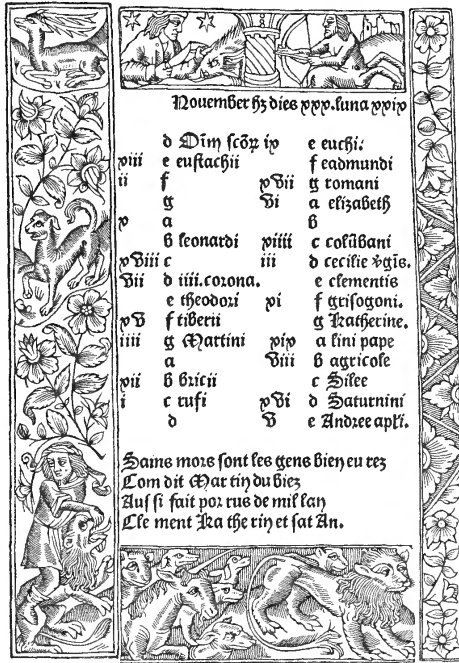 Nouember hꝫ dies xxx.luna xxix
d Oīm scōꝝ
xiii e eustachii
ii f
g
x a
b leonardi
xviii c
vii d iiii.corona.
e theodori
xv f tiberii
iiii g Martini
a
xii b bricii
i c rufi
d
ix e euchi.
f eadmundi
xvii g romani
vi a elizabeth
b
xiiii c colūbani
iii d cecilie v̾gīs.
e clementis
xi f grisogoni.
g Katherine.
xix a lini pape
viii b agricole
c Silee
xvi d Saturnini
v e Andree apƚi.
Sains mors sont les gens bien eu rez
Com dit Mar tin du biez
Aus si fait por rus de mil lan
Cle ment Ka the rin et sat An.